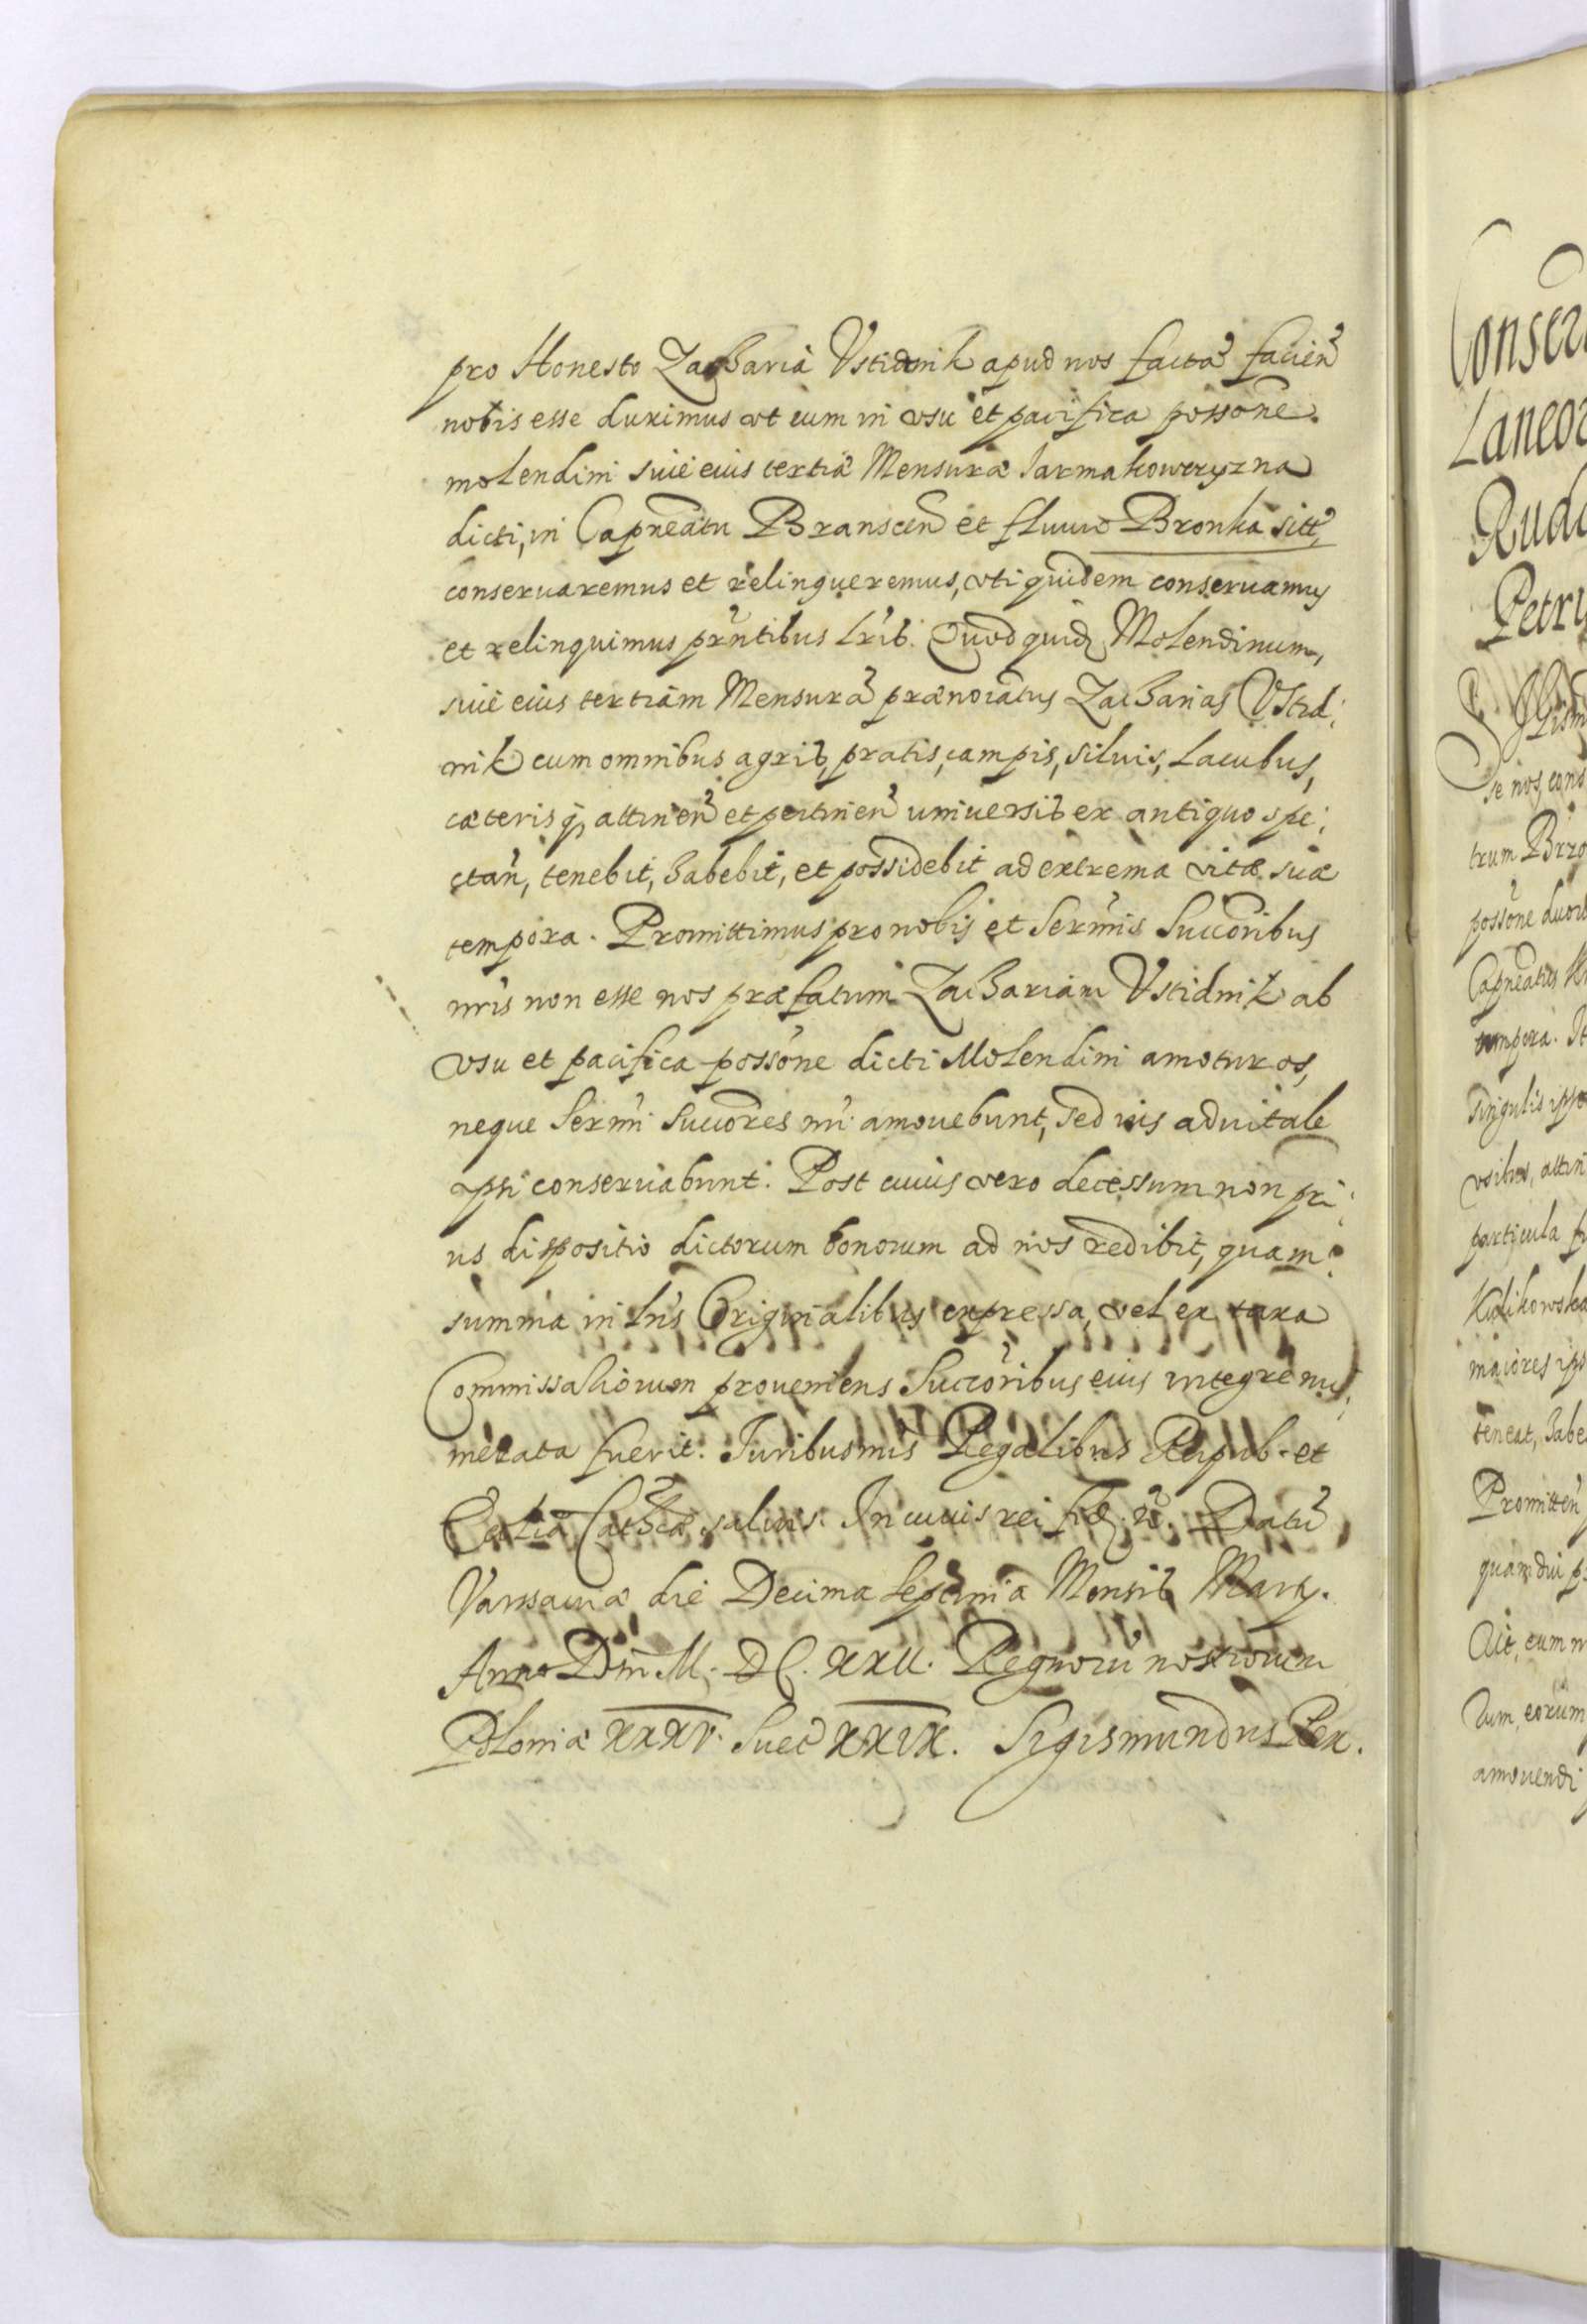 pro Honesto Zachariá Vstidnik apud nos factã facieñ
nobis esse duximus vt eum in vsu et pacifica possoñe
molendini siue eius tertiæ Mensuræ Iarmakowczyzna
dicti, in Capneatu Branscen̄ et fluuio Bronka sitt,
conseruaremus et relinqueremus, vti quidem conseruamus
et relinquimus prñtibus lris. Quod quid Molendinum,
siue eius tertiam Mensurã prænoiatus Zacharias Vstid:
nik cum omnibus agris, pratis, campis, siluis, Lacubus,
cæterisq, attineñ et pertineñ uniuersis ex antiquo spe:
ctañ, tenebit, habebit, et possidebit ad extrema vitæ suæ
tempora. Promittimus pro nobis et Sermis Succoribus
nris non esse nos præfatum Zachariam Vstidnik ab
vsu et pacifica possone dicti Molendini amoturos,
neque Sermi Succores nri amouebunt, sed ius aduitale
ipsi conseruabunt. Post cuius vero decessum non pri:
us dispositio dictorum bonorum ad nos redibit, quam
summa in lris Originalibus expressa, vel ex taxa
Commissariorum proueniens Succoribus eius integre nu:
merata fuerit. Iuribus nris Regalibus Reipub. et
Ecclia Cathca saluis. In cuius rei fid. n. Datũ
Varsauiæ die Decima Septima Mensis Marty.
Anno Dni M. DC. XXII. Regnorũ nostrorum
Poloniæ XXXV. Suec XXIX. Sigismundus Rex.
Laneor
Petri
se nos cons
trum Brzo
possone duor
singulis ipso
particula fu
maiores ips
teneat, habe
Promitteñ
quamdiu p
dum, eorum
amouendi